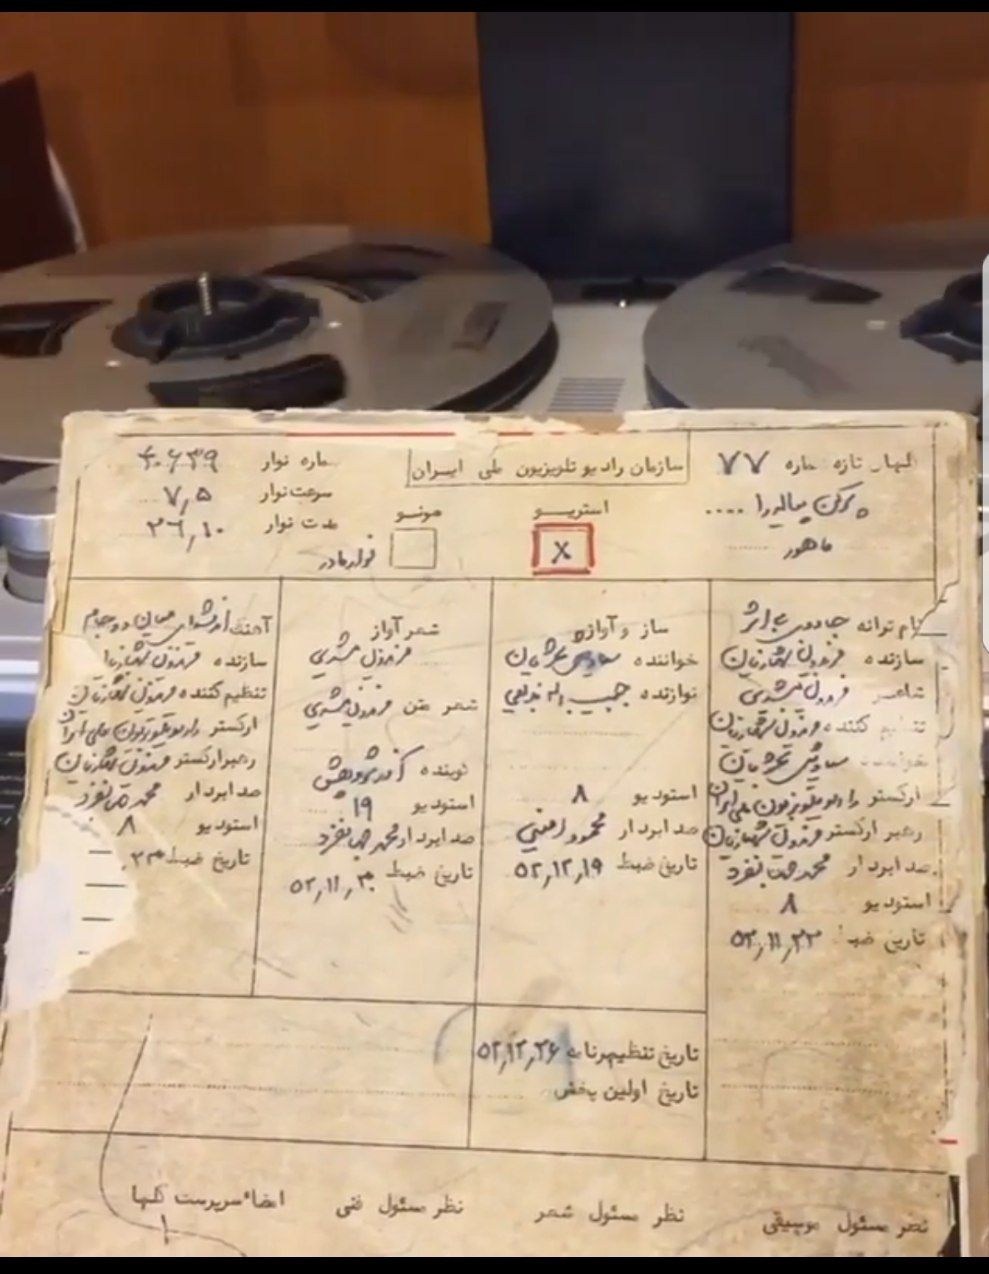 گلهای تازه شماره ۷۷
پرکن پیاله را ....
ماهور
سازمان رادیو تلویزیون ملی ایران
استریو
X
مونو
شماره نوار ۴۰۶۳۹
سرعت نوار ۷,۵
مدت نوار ۲۶,۱۰
نوار مادر
نام ترانه جادوی بی اثر
سازنده فریدون شهبازیان
شاعر فریدون مشیری
تنظیم کننده فریدون شهبازیان
خواننده سیاوش شجریان
ارکستر رادیو تلویزیون ملی ایران
رهبر ارکستر فریدون شهبازیان
صدابردار محمد جهانفرد
استودیو ۸
تاریخ ضبط ۵۲,۱۱,۲۳
ساز و آواز
خواننده سیاوش شجریان
نوازنده حبیب اله بدیعی
استودیو ۸
صدابردار محمود امینی
تاریخ ضبط ۵۲,۱۲,۱۹
شعر آواز
فریدون مشیری
شعر متن فریدون مشیری
گوینده آذر پژوهش
استودیو ۱۹
صدابردار محمد جهانفرد
تاریخ ضبط ۵۲,۱۱,۳۰
آهنگ
سازنده فریدون شهبازیان
تنظیم کننده فریدون شهبازیان
ارکستر رادیو تلویزیون ملی ایران
رهبر ارکستر فریدون شهبازیان
صدابردار محمد جهانفرد
استودیو ۸
تاریخ ضبط
تاریخ تنظیم برنامه ۵۲,۱۲,۲۶
تاریخ اولین پخش
نظر مسئول موسیقی
نظر مسئول شعر
نظر مسئول فنی
امضاء سرپرست گلها